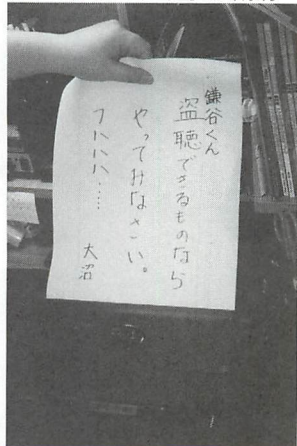 鎌谷くん
盗聴できるものなら
やってみなさい。
フハハハ……
大沼